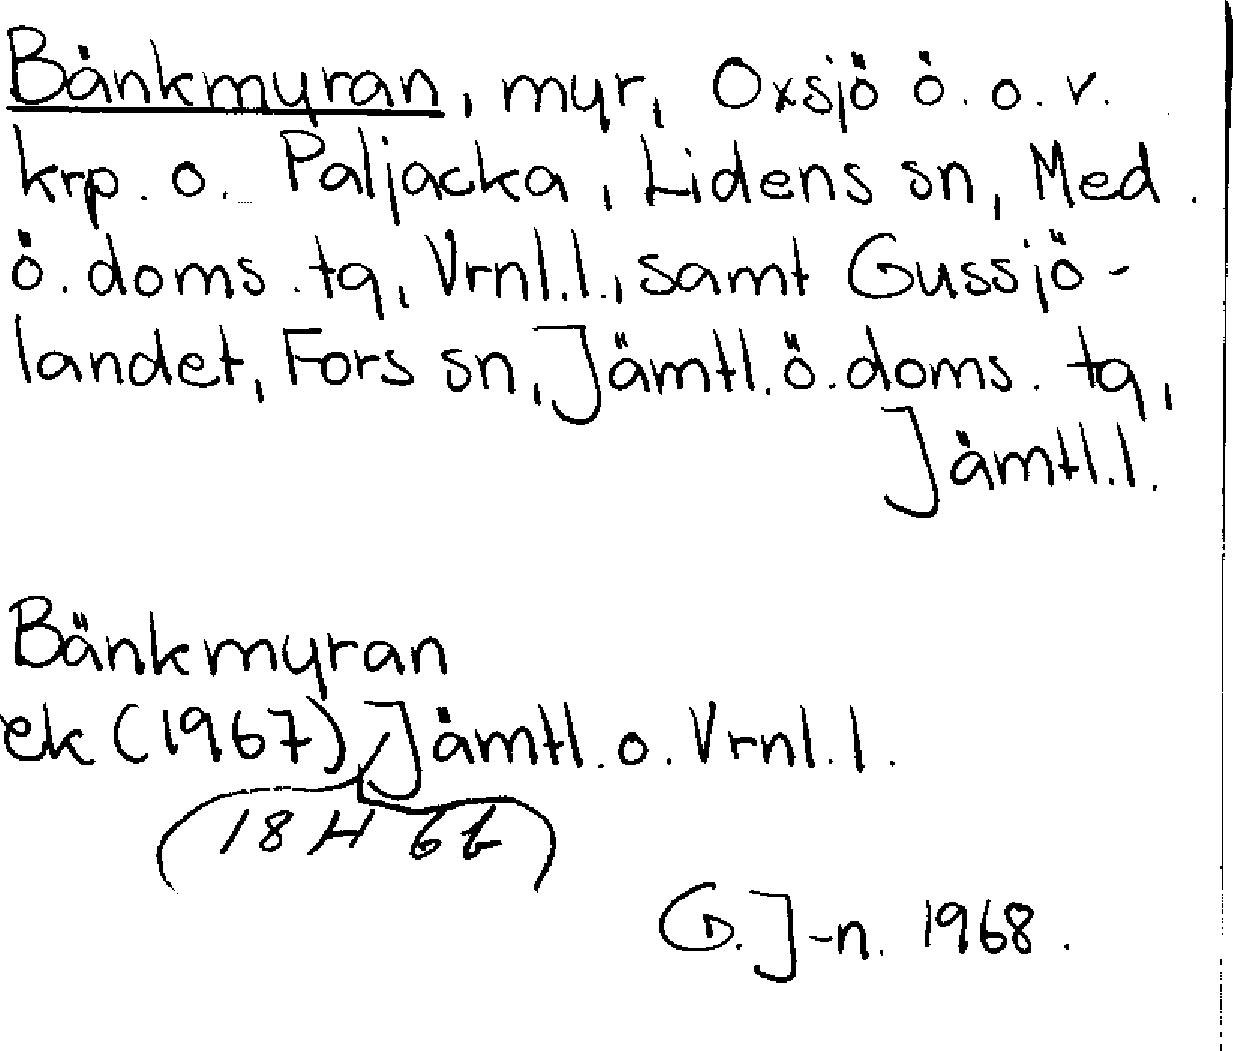 Bänkmyran, myr, Oxsjö ö. o. v.
krp. o. Paljacka, Lidens sn, Med.
ö. doms. tg, Vrnl.l., samt Gussjö-
landet, Fors sn, Jämtl. ö. doms. tg,
Jämtl.l.
Bänkmyran
ek (1967), Jämtl. o. Vrnl. l.
(18 H 6b)
G. J-n. 1968.